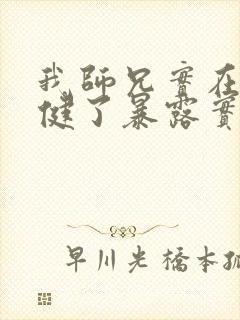 我師兄實在
健了暴露實
早川光橋本孤